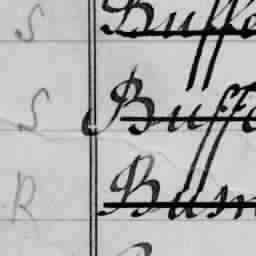 S Buffo
S Buffe
R Bum